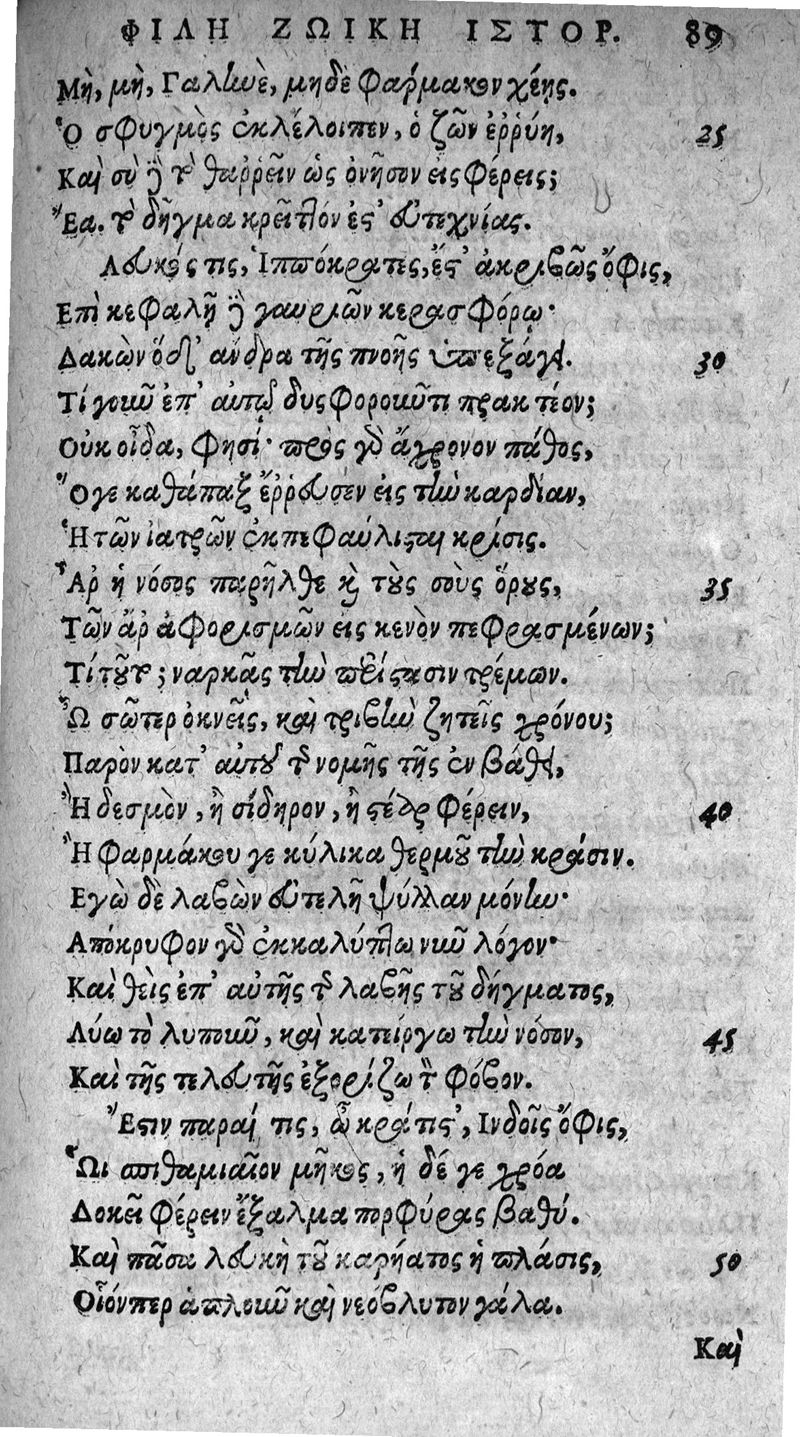 ΦΙΛΗ ΖΩΙΚΗ ΙΣΤΟΡ. 89
Μὴ, μὴ, Γαληνὲ, μηδὲ φαρμακον χέῃς.
Ὁ σφυγμὸς ἐκλέλοιπεν, ὁ ζῶν ἐῤῥύη, 25
Καὶ σὺ δὲ τὸ θαῤῥεῖν ὡς ὀνῆσον εἰσφέρεις;
Ἔα. τὸ δῆγμα κρεῖττόν ἐσ' εὐτεχνίας.
Λευκός τις, Ἱππόκρατες, ἔς' ἀκριβῶς ὄφις,
Επὶ κεφαλῆ δὲ γαυριῶν κερασφόρῳ·
Δακὼν ὅδ' ανδρα τῆς πνοῆς ὑπεξάγει. 30
Τί γοιοῦ ἐπ' αὐτῷ δυσφοροιοῦτι πρακτέον;
Οὐκ οἶδα, φησί· πρὸς γὸ ἄχρονον πάθος,
Ὅγε καθάπαξ ἔῤῥευσεν εἰς τὴν καρδίαν,
Ἡ τῶν ἰατρῶν ἐκπεφαύλισαι κρίσις.
Ἆρ ἡ νόσος παρῆλθε καὶ τοὺς σοὺς ὅρους, 35
Τῶν ἄρ ἀφορισμῶν εἰς κενὸν πεφρασμένων;
Τί τοῦτο; ναρκᾷς τὴν περίστασιν τρέμων.
Ὦ σῶτερ ὀκνεῖς, καὶ τριβὴν ζητεῖς χρόνου;
Παρὸν κατ' αὐτοῦ τὸ νομῆς τῆς ἐν βάθει,
Ἢ δεσμὸν, ἢ σίδηρον, ἢ στέαρ φέρειν, 40
Ἢ φαρμάκου γε κύλικα θερμοῦ τὴν κράσιν.
Εγὼ δὲ λαβὼν εὐτελῆ ψύλλαν μόνην·
Απόκρυφον γὸ ἐκκαλύπτω νῦν λόγον·
Καὶ θεὶς ἐπ' αὐτῆς τὸ λαβῆς τοῦ δήγματος,
Λύω τὸ λυποῦν, καὶ κατείργω τὴν νόσον, 45
Καὶ τῆς τελευτῆς ἐξορίζω τὸν φόβον.
Ἔστιν παραί τις, ὦ κράτιστ', Ινδοῖς ὄφις,
Ὧι σπιθαμιαῖον μῆκος, ἡ δέ γε χρόα
Δοκεῖ φέρειν ἔξαλμα πορφύρας βαθύ.
Καὶ πᾶσα λευκὴ τοῦ καρήατος ἡ πλάσις, 50
Οἷόνπερ ἁπλοῦν καὶ νεόβλυτον γάλα.
Καὶ